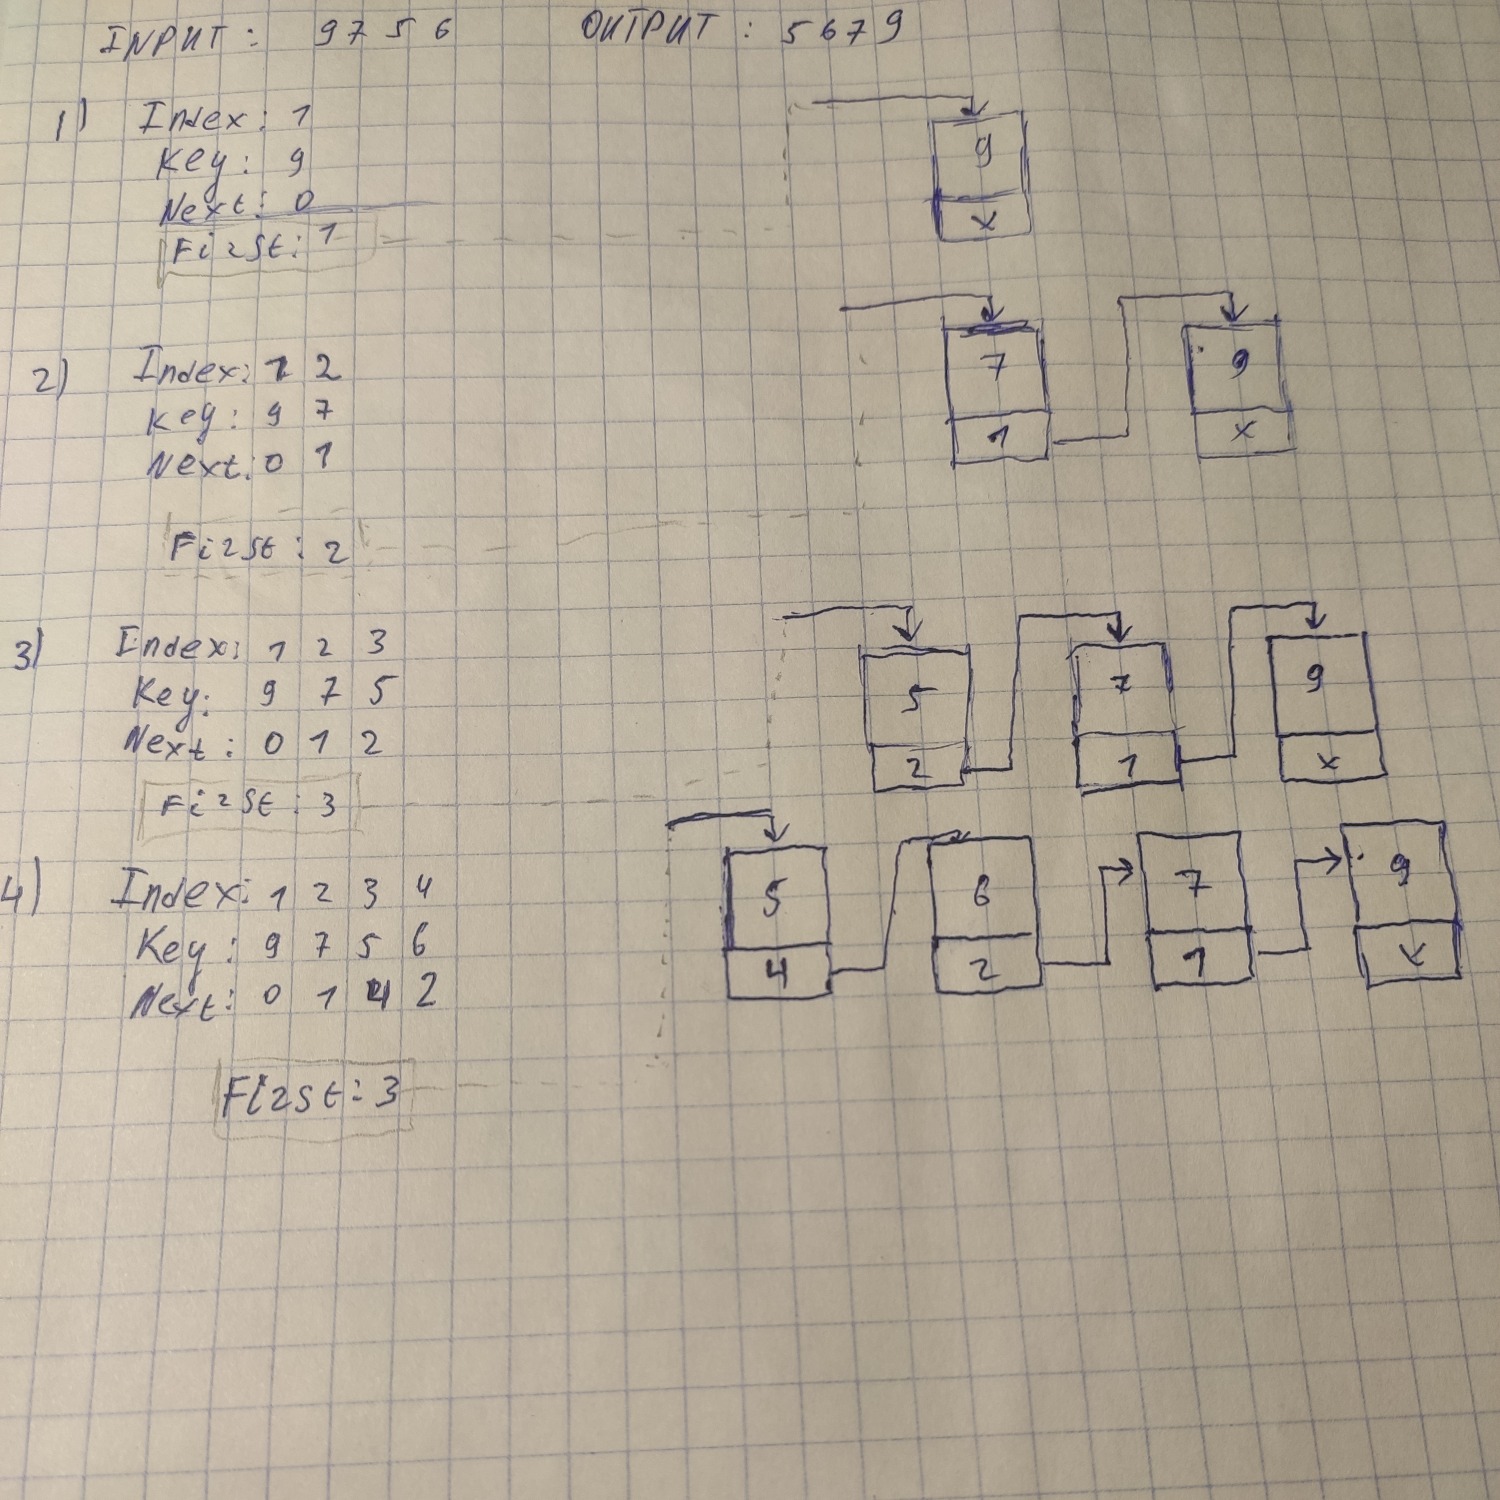 INPUT: 9 7 5 6 OUTPUT: 5 6 7 9
1) Index: 1
Key: 9
Next: 0
First: 1
9
x
2) Index: 1 2
Key: 9 7
Next: 0 1
First: 2
7 9
1 x
3) Index: 1 2 3
Key: 9 7 5
Next: 0 1 2
First: 3
5 7 9
2 1 x
4) Index: 1 2 3 4
Key: 9 7 5 6
Next: 0 1 4 2
First: 3
5 6 7 9
4 2 1 x